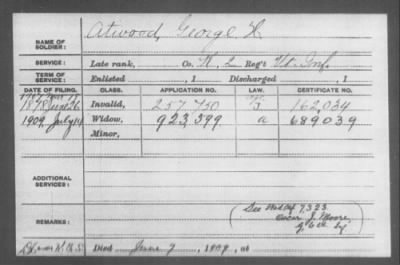 NAME OF SOLDIER: Atwood, George H
SERVICE: Late rank, Co. K, 2 Reg't Vt. Inf.
TERM OF SERVICE: Enlisted , 1 Discharged , 1
DATE OF FILING. CLASS. APPLICATION NO. LAW. CERTIFICATE NO.
1878 June 26 Invalid, 257,750 162,034
1909, July 14 Widow, 923,399 a 689039
Minor,
ADDITIONAL SERVICES:
REMARKS: See Wid Ctf 7,323
Oscar J. Moore,
Died June 7, 1909, at